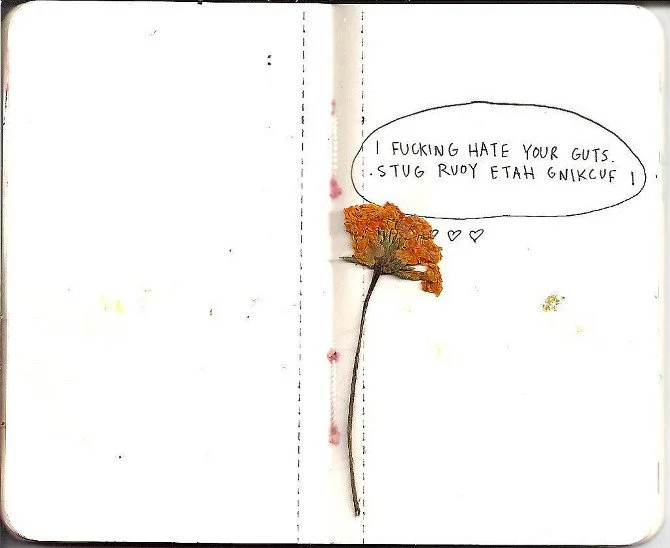 I FUCKING HATE YOUR GUTS.
.STUG RUOY ETAH GNIKCUF I